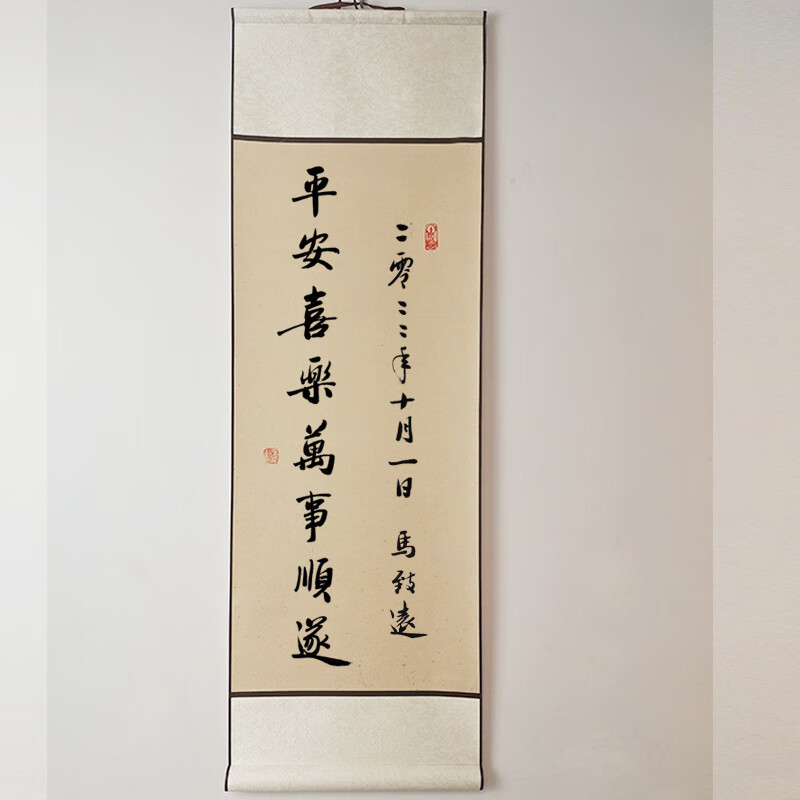 二零二二年十月一日 馬致遠
平安喜樂萬事順遂